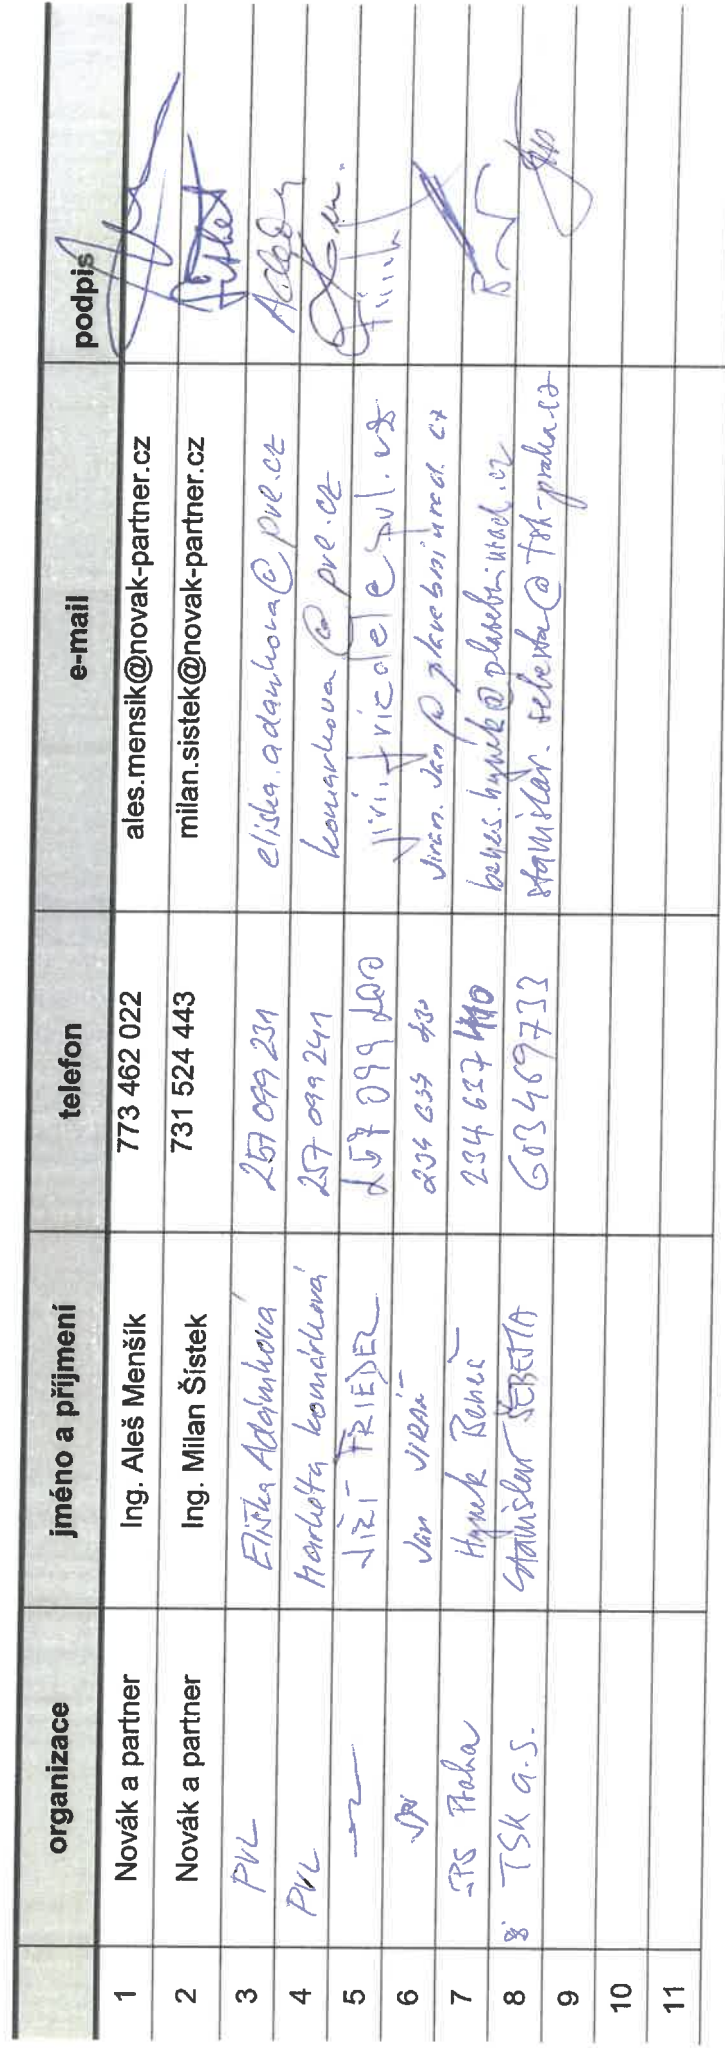 organizace jméno a příjmení telefon e-mail podpis
1 Novák a partner Ing. Aleš Menšík 773 462 022 ales.mensik@novak-partner.cz
2 Novák a partner Ing. Milan Šístek 731 524 443 milan.sistek@novak-partner.cz
3 PVL Eliška Adámková 257 099 231 eliska.adamkova@pvl.cz
4 PVL Markéta Komárková 257 099 241 komarkova@pvl.cz
5 JIŘÍ FRIEDEL 257 099 200 jiri.friedel@pvl.cz
6 Jan JIRÁŇ 234 637
7 Praha Hynek Beneš 234 637 440 benes.hynek@plavebniurad.cz
8 TSK a.s. Stanislav ŠEBESTA 603469733 stanislav.sebesta@tsk-praha.cz
9
10
11